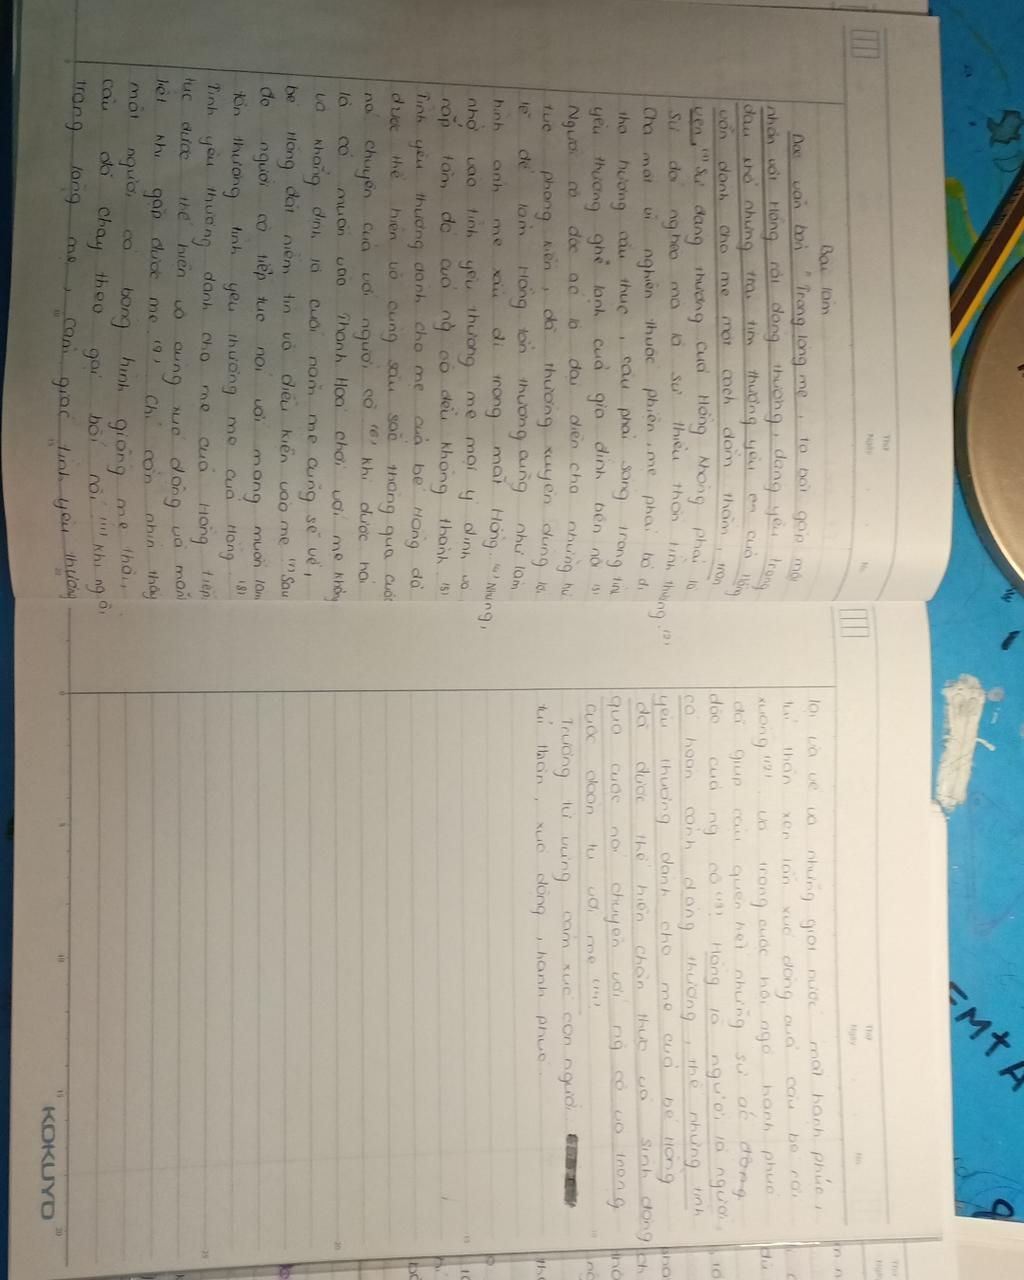 Bài làm
Đọc văn bản "Trong lòng mẹ, ta bắt gặp một
nhân vật Hồng rất đáng thương, đáng yêu trong
đau khổ nhưng trái tim thương yêu em của Hồng
vẫn dành cho mẹ một cách đằm thắm, trọn
vẹn (1) Sự đáng thương của Hồng không phải là
sự đó nghèo mà là sự thiếu thốn tình thương. (2)
Cha mất vì nghiện thuốc phiện, mẹ phải bỏ đi
tha hương cầu thực, cậu phải sống trong tình
yêu thương ghẻ lạnh của gia đình bên nội (3)
Người cô độc ác là đại diện cho những hủ
tục phong kiến, đã thường xuyên dùng lời
lẽ để làm Hồng tổn thương cũng như làm
hình ảnh mẹ xấu đi trong mắt Hồng. (4) Nhưng,
nhờ vào tình yêu thương mẹ mọi ý định và
rắp tâm đó của ng cô đều không thành (5)
Tình yêu thương dành cho mẹ của bé Hồng đã
được thể hiện vô cùng sâu sắc thông qua cuộc
nói chuyện của với người cô (6) Khi được hỏi
là có muốn vào Thanh Hoá chơi với mẹ không
và khẳng định là cuối năm mẹ cũng sẽ về,
bé Hồng đặt niềm tin và điều kiện vào mẹ (7) Sau
đó người cô tiếp tục nói với mong muốn làm
tổn thương tình yêu thương mẹ của Hồng (8)
Tình yêu thương dành cho mẹ của Hồng tiếp
tục được thể hiện vô cùng xúc động và mãnh
liệt khi gặp được mẹ (9) Chỉ cần nhìn thấy
một người có bóng hình giống mẹ thôi,
cậu đã chạy theo gọi bối rối (11) Khi ngồi
trong lòng mẹ, cảm giác tình yêu thương
lại ùa về và những giọt nước mắt hạnh phúc,
tủi thân xen lẫn xúc động của cậu bé rơi
xuống (12) và trong cuộc hội ngộ hạnh phúc
đã giúp cậu quên hết những sự ác động
độc của ng cô (13) Hồng là người là người
có hoàn cảnh đáng thương, thế nhưng tình
yêu thương dành cho mẹ của bé Hồng
đã được thể hiện chân thực và sinh động
qua cuộc nói chuyện với ng cô và trong
cuộc đoàn tụ với mẹ (14)
Trường từ vựng cảm xúc con người
tủi thân, xúc động, hạnh phúc.
KOKUYO